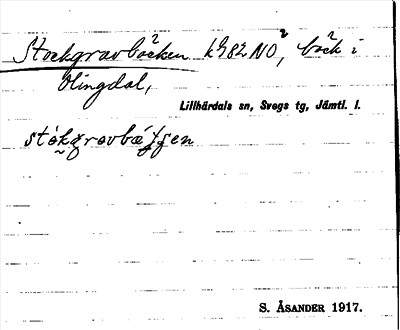 Stockgravbäcken k982NO², bäck i
Olingdal,
Lillhärdals sn, Svegs tg, Jämtl. l.
S. ÅSANDER 1917.